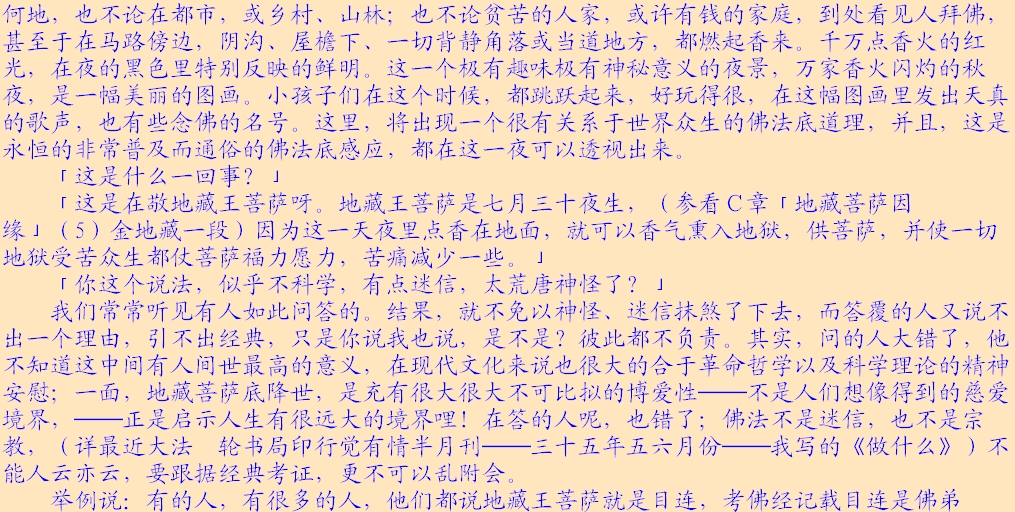 何地，也不论在都市，或乡村、山林；也不论贫苦的人家，或许有钱的家庭，到处看见人拜佛，
甚至于在马路傍边，阴沟、屋檐下、一切背静角落或当道地方，都燃起香来。千万点香火的红
光，在夜的黑色里特别反映的鲜明。这一个极有趣味极有神秘意义的夜景，万家香火闪灼的秋
夜，是一幅美丽的图画。小孩子们在这个时候，都跳跃起来，好玩得很，在这幅图画里发出天真
的歌声，也有些念佛的名号。这里，将出现一个很有关系于世界众生的佛法底道理，并且，这是
永恒的非常普及而通俗的佛法底感应，都在这一夜可以透视出来。
「这是什么一回事？」
「这是在敬地藏王菩萨呀。地藏王菩萨是七月三十夜生，（参看C章「地藏菩萨因
缘」（5）金地藏一段）因为这一天夜里点香在地面，就可以香气熏入地狱，供菩萨，并使一切
地狱受苦众生都仗菩萨福力愿力，苦痛减少一些。」
「你这个说法，似乎不科学，有点迷信，太荒唐神怪了？」
我们常常听见有人如此问答的。结果，就不免以神怪、迷信抹煞了下去，而答覆的人又说不
出一个理由，引不出经典，只是你说我也说，是不是？彼此都不负责。其实，问的人大错了，他
不知道这中间有人间世最高的意义，在现代文化来说也很大的合于革命哲学以及科学理论的精神
安慰；一面，地藏菩萨底降世，是充有很大很大不可比拟的博爱性——不是人们想像得到的慈爱
境界，——正是启示人生有很远大的境界哩！在答的人呢，也错了；佛法不是迷信，也不是宗
教，（详最近大法　轮书局印行觉有情半月刊——三十五年五六月份——我写的《做什么》）不
能人云亦云，要跟据经典考证，更不可以乱附会。
举例说：有的人，有很多的人，他们都说地藏王菩萨就是目连，考佛经记载目连是佛弟